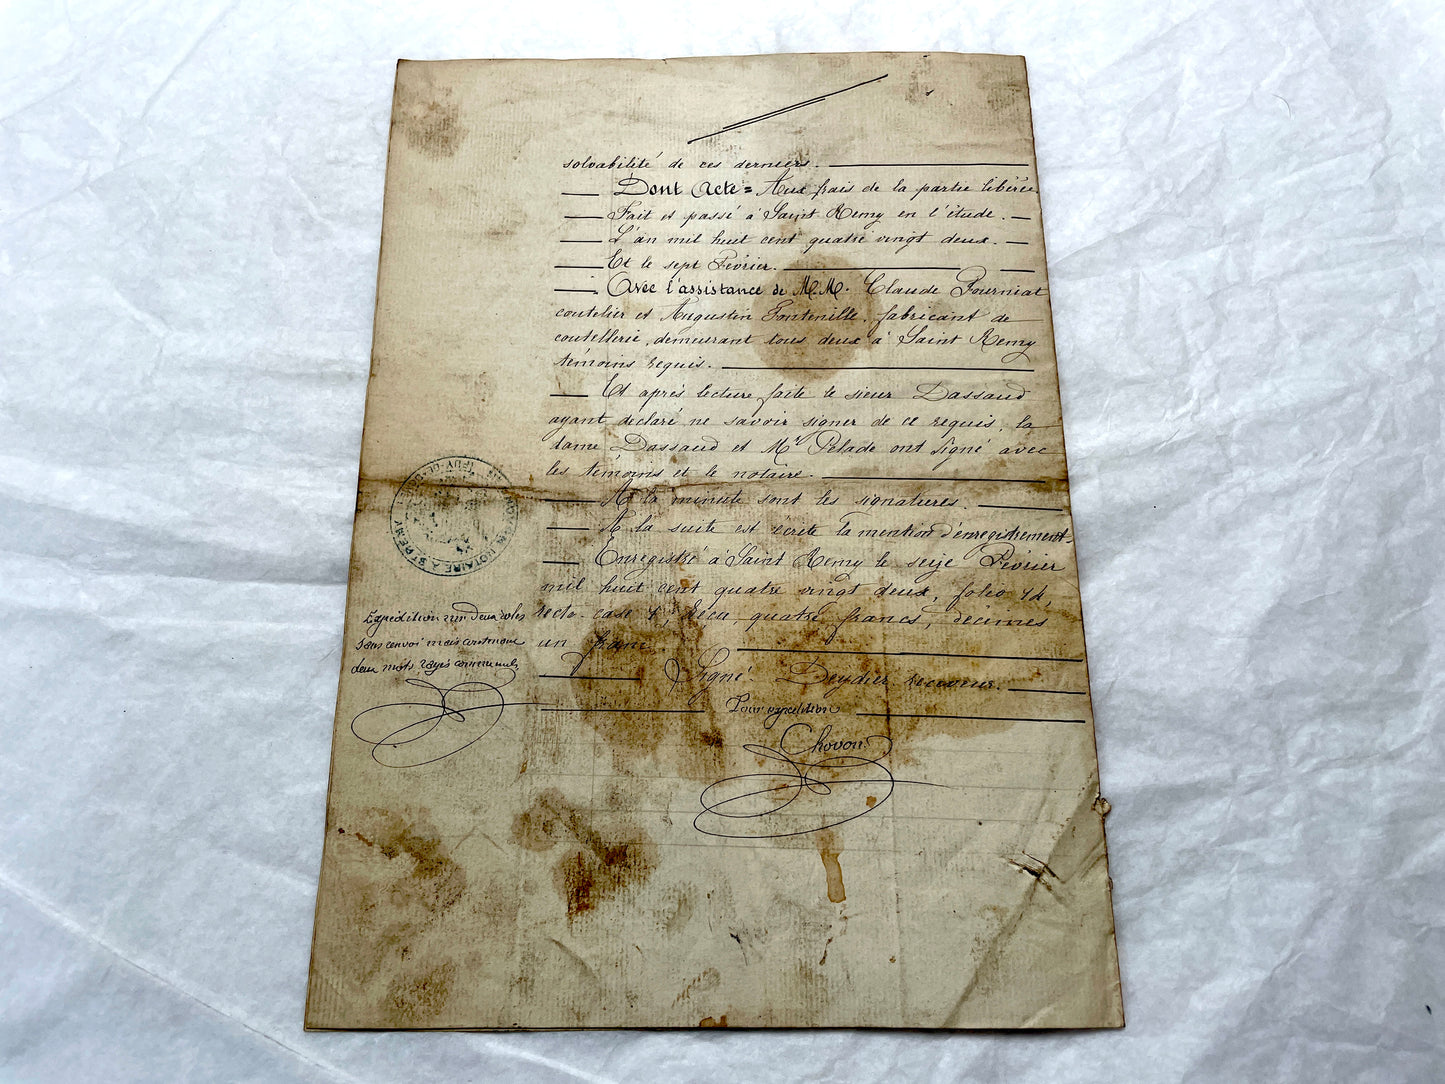 solvabilité de ces derniers.
Dont Acte = Aux frais de la partie libérée
Fait et passé à Saint Remy en l'étude.
L'an mil huit cent quatre vingt deux.
Et le sept Février.
Avec l'assistance de M.M. Claude Fourniat
coutelier et Augustin Fontenille, fabricant de
coutellerie, demeurant tous deux à Saint Remy
témoins requis.
Et après lecture faite le sieur Dassaud
ayant déclaré ne savoir signer de ce requis, la
dame Dassaud et Mr Pelade ont signé avec
les témoins et le notaire.
A la minute sont les signatures.
A la suite est écrite la mention d'enregistrement.
Enregistré à Saint Remy le seize Février
mil huit cent quatre vingt deux, folio
recto case Reçu, quatre francs, décimes
un franc.
Signé: Deydier receveur.
Pour expédition
Chovon
NOTAIRE A ST REMY
PUY-DE-DOME
Expédition sur deux rôles
sans renvoi mais contenant
deux mots rayés comme nuls